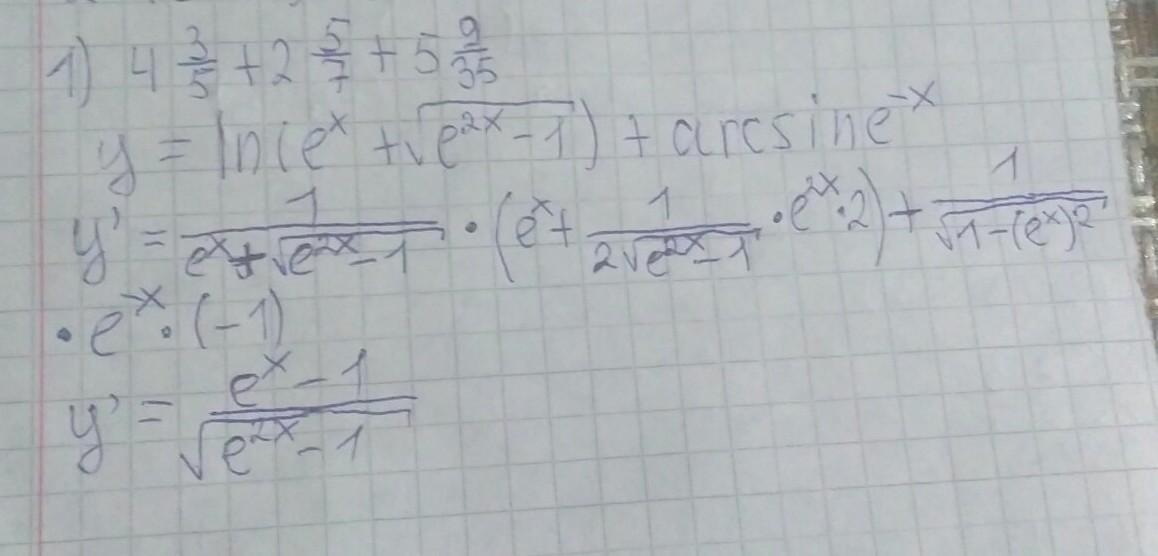 1) 4 3/5 + 2 5/7 + 5 9/35
y = ln(eˣ + √(e²ˣ - 1)) + arcsin e⁻ˣ
y' = 1/(eˣ + √(e²ˣ - 1)) · (eˣ + 1/(2√(e²ˣ - 1)) · e²ˣ · 2) + 1/√(1 - (eˣ)²)
· e⁻ˣ · (-1)
y' = (eˣ - 1)/√(e²ˣ - 1)